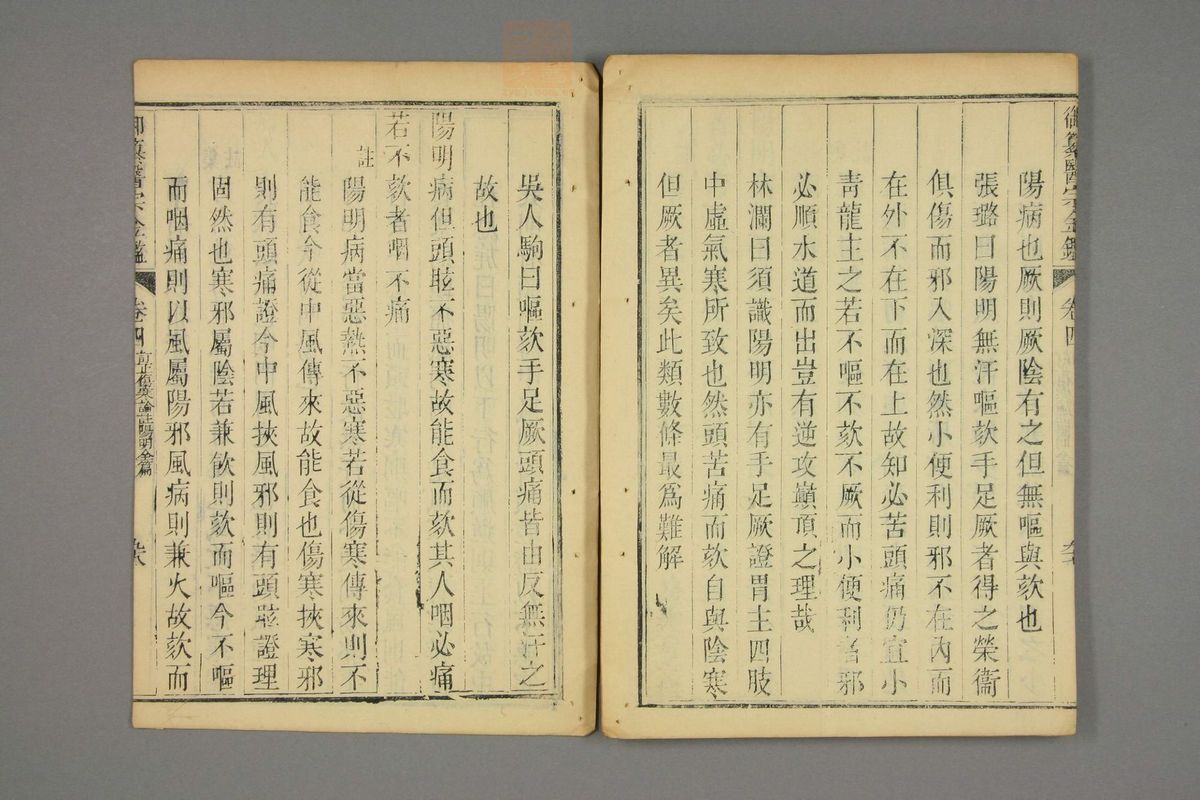 御纂醫宗金鑑 卷四
陽病也厥則厥陰有之但無嘔與欬也
張璐曰陽明無汗嘔欬手足厥者得之榮衞
俱傷而邪入深也然小便利則邪不在內而
在外不在下而在上故知必苦頭痛仍宜小
靑龍主之若不嘔不欬不厥而小便利者邪
必順水道而出豈有逆攻巔頂之理哉
林瀾曰須識陽明亦有手足厥證胃主四肢
中虛氣寒所致也然頭苦痛而欬自與陰寒
但厥者異矣此類數條最爲難解
吳人駒曰嘔欬手足厥頭痛皆由反無汗之
故也
陽明病但頭眩不惡寒故能食而欬其人咽必痛
若不欬者咽不痛
註 陽明病當惡熱不惡寒若從傷寒傳來則不
能食今從中風傳來故能食也傷寒挾寒邪
則有頭痛證今中風挾風邪則有頭眩證理
固然也寒邪屬陰若兼飮則欬而嘔今不嘔
而咽痛則以風屬陽邪風病則兼火故欬而
御纂醫宗金鑑 卷四 訂正傷寒論註陽明全篇